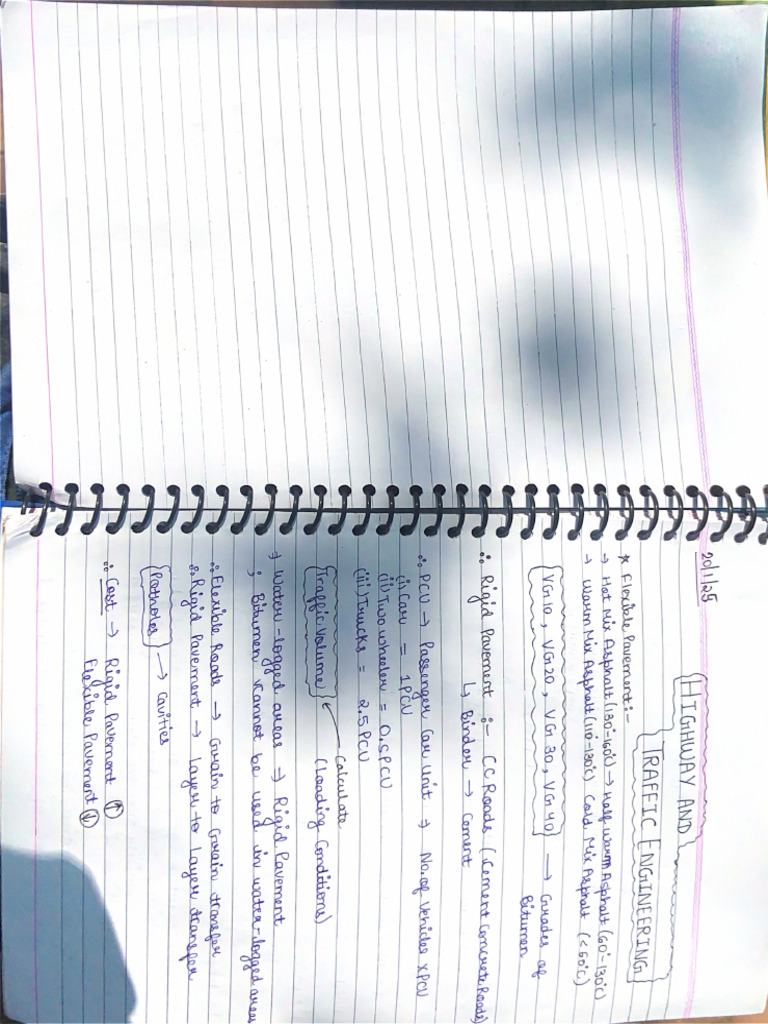 20/1/25
HIGHWAY AND
TRAFFIC ENGINEERING
* Flexible Pavement:-
→ Hot Mix Asphalt (130°-160°C) → Half warm Asphalt (60°-130°C)
→ Warm Mix Asphalt (110°-130°C) Cold Mix Asphalt (<60°C)
VG10, VG20, VG30, VG40 → Grades of
Bitumen
∴ Rigid Pavement :- CC Roads (Cement Concrete Roads)
↳ Binder → Cement
∴ PCU → Passenger Car Unit → No. of Vehicles X PCU
(i) Car = 1PCU
(ii) Two wheeler = 0.5PCU
(iii) Trucks = 2.5PCU
Calculate
Traffic Volume (Loading Conditions)
→ Water-logged areas → Rigid Pavement
; Bitumen cannot be used in water-logged areas
∴ Flexible Roads → Grain to Grain transfer
∴ Rigid Pavement → Layer to Layer transfer
Potholes → Cavities
∴ Cost → Rigid Pavement ↑
Flexible Pavement ↓